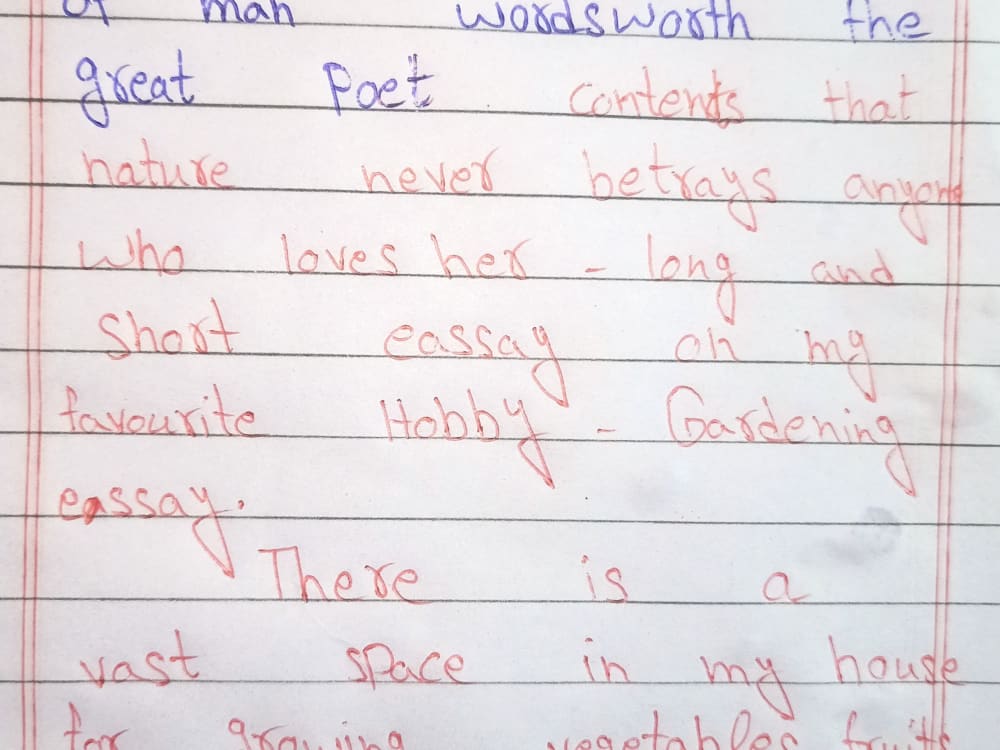 of man wordsworth the
great Poet contents that
nature never betrays anyone
who loves her - long and
Short eassay on my
favourite Hobby - Gardening
eassay.
There is a
vast space in my house
for growing vegetables fruits